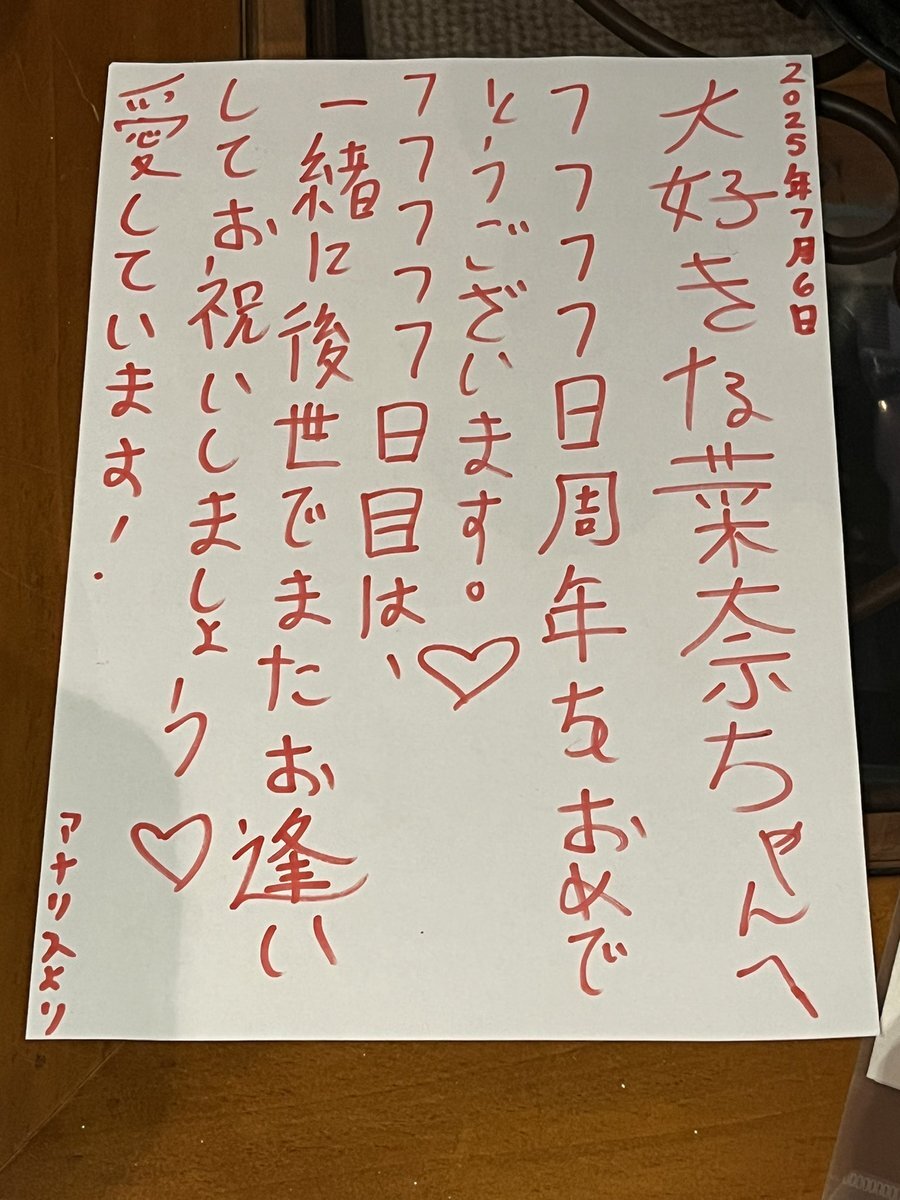 2025年7月6日
大好きな菜奈ちゃんへ
7777日周年をおめで
とうございます。♡
77777日目は、
一緒に後世でまたお逢い
してお祝いしましょう♡
愛しています!
アナリスより